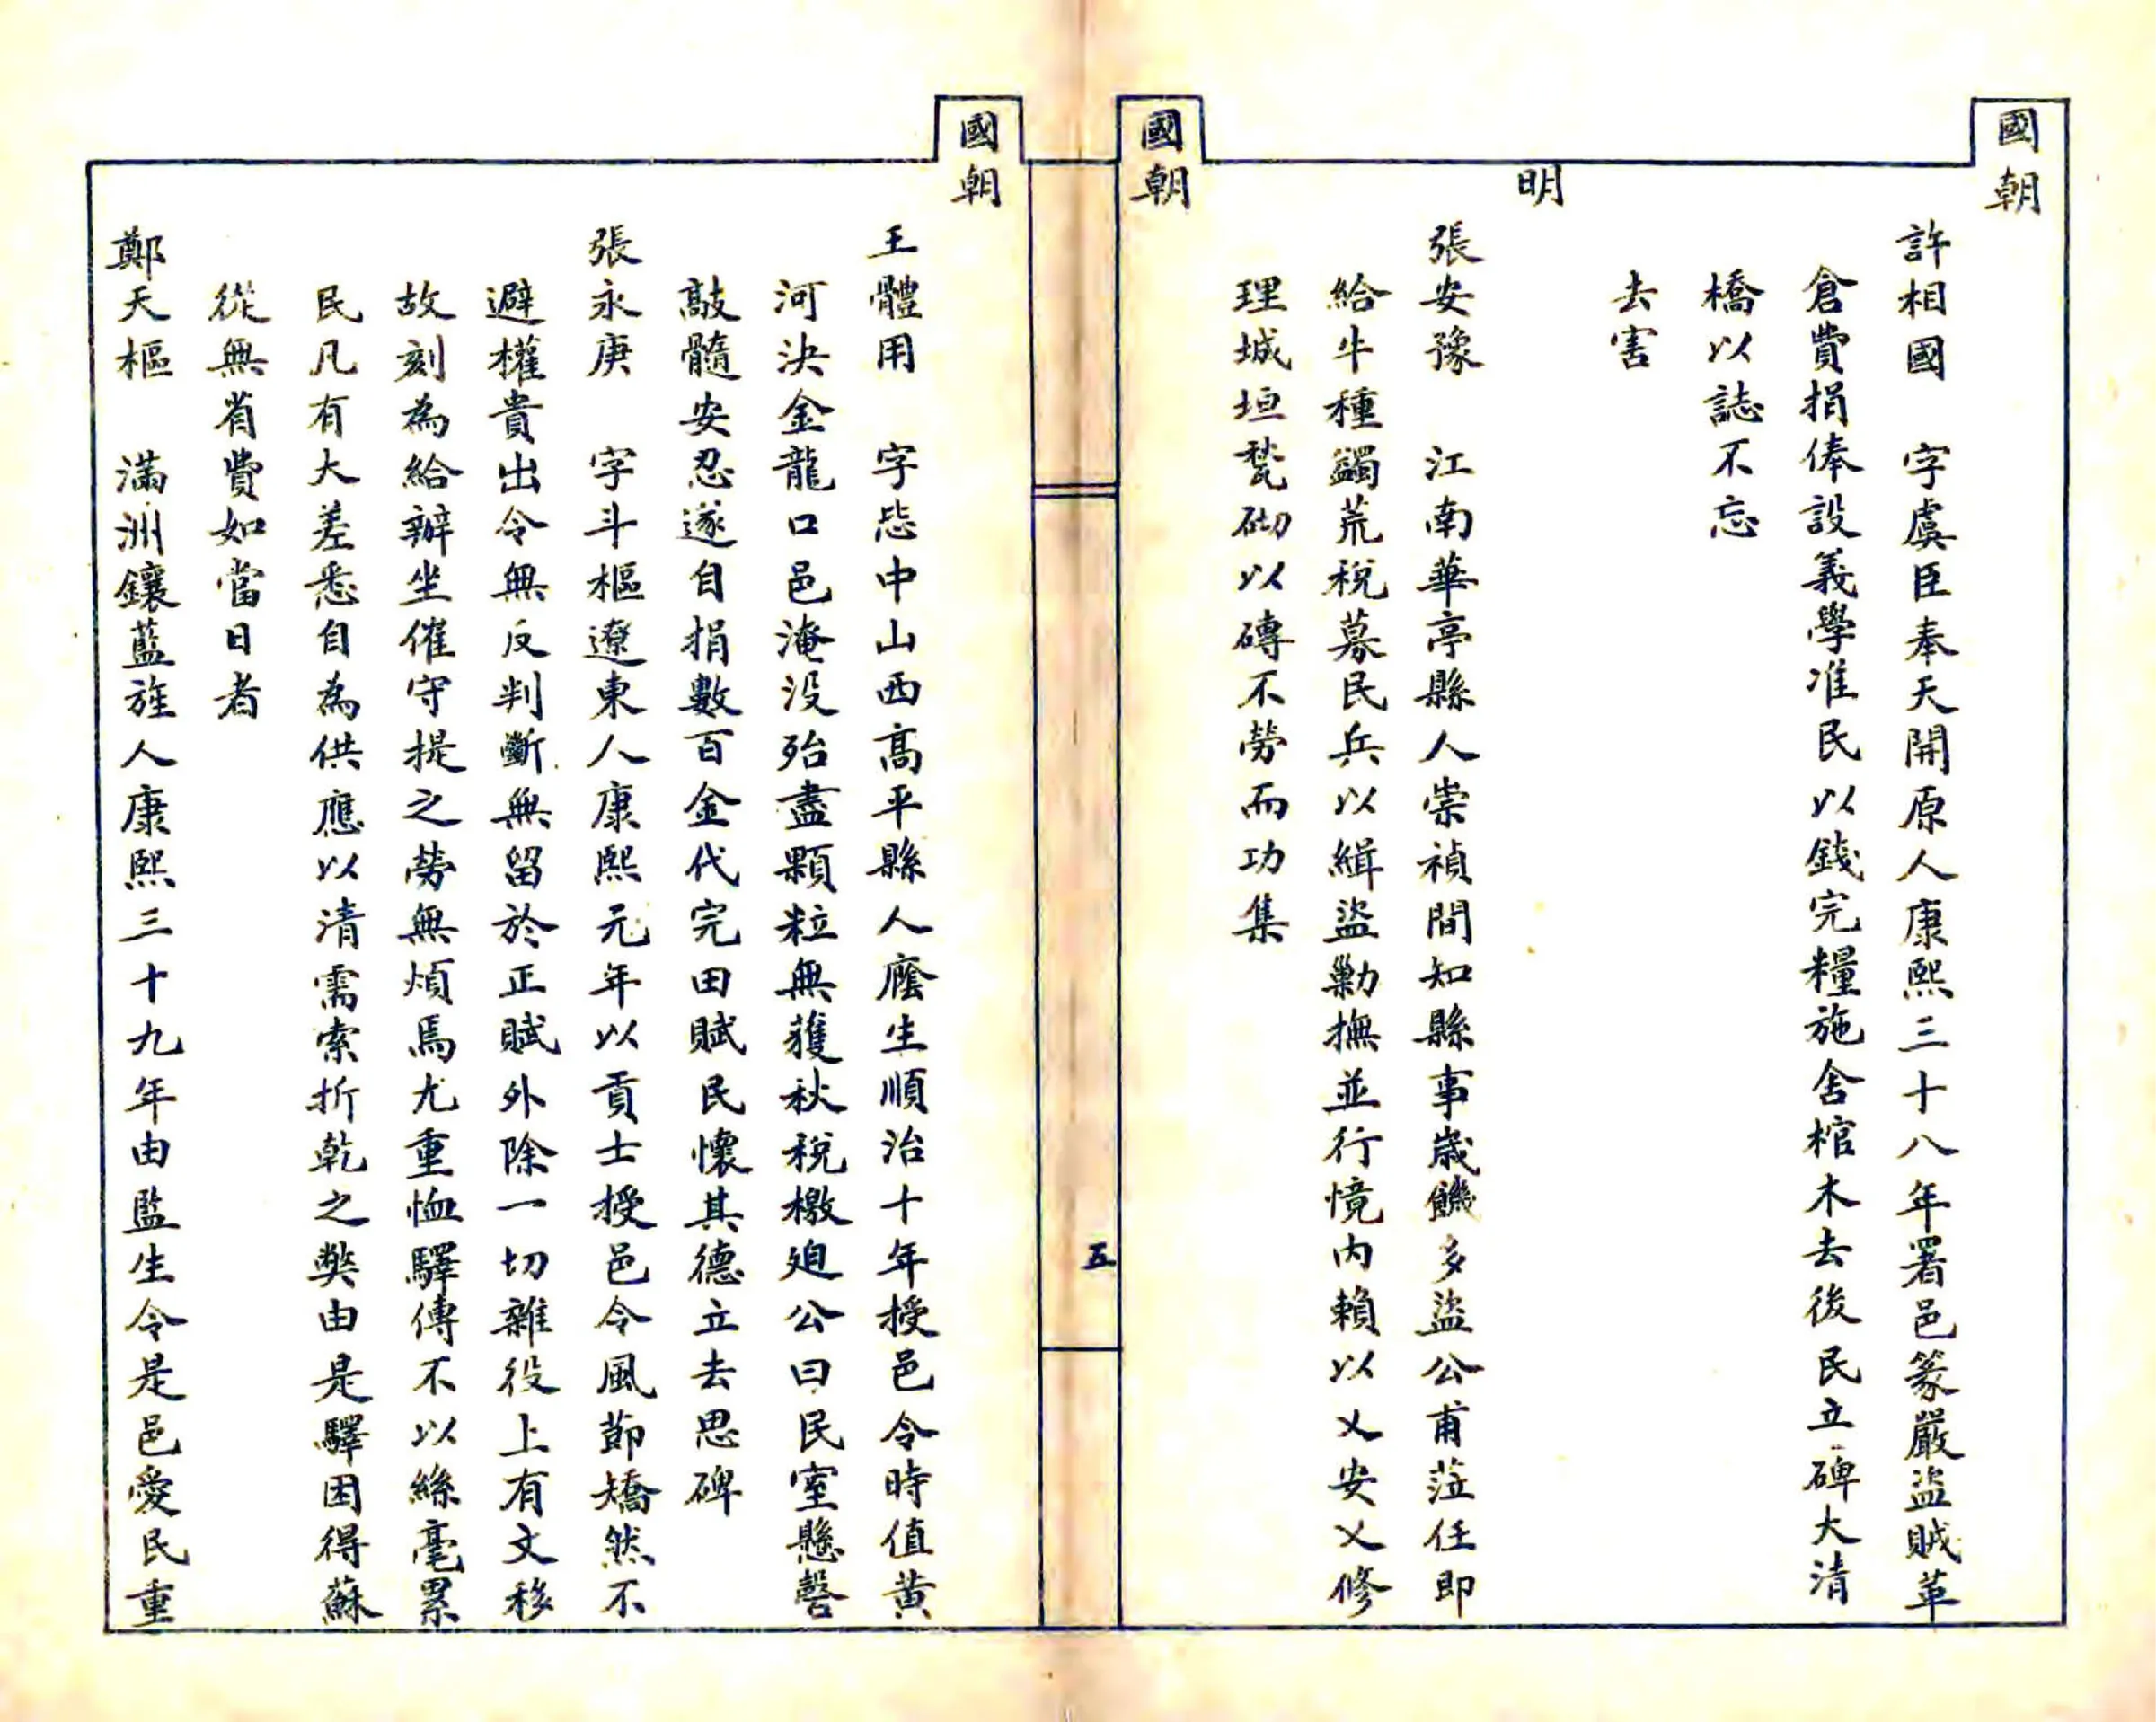 國朝
許相國　字虞臣奉天開原人康熙三十八年署邑篆嚴盜賊革
倉費捐俸設義學准民以錢完糧施舍棺木去後民立碑大清
橋以誌不忘
去害
明
張安豫　江南華亭縣人崇禎間知縣事歲饑多盜公甫蒞任即
給牛種蠲荒稅募民兵以緝盜勦撫並行憶內賴以乂安乂修
理城垣甃砌以磚不勞而功集
國朝
五
國朝
王體用　字恭中山西高平縣人廕生順治十年授邑令時值黃
河決金龍口邑淹没殆盡顆粒無獲秋稅檄廹公曰民室懸罄
敲髓安忍遂自捐數百金代完田賦民懷其德立去思碑
張永庚　字斗樞遼東人康熙元年以貢士授邑令風節矯然不
避權貴出令無反判斷無留於正賦外除一切雜役上有文移
故刻為給辦坐催守提之勞無煩焉尤重恤驛傳不以絲毫累
民凡有大差悉自為供應以清需索折乾之弊由是驛困得蘇
從無省費如當日者
鄭天樞　滿洲鑲藍旌人康熙三十九年由監生令是邑愛民重